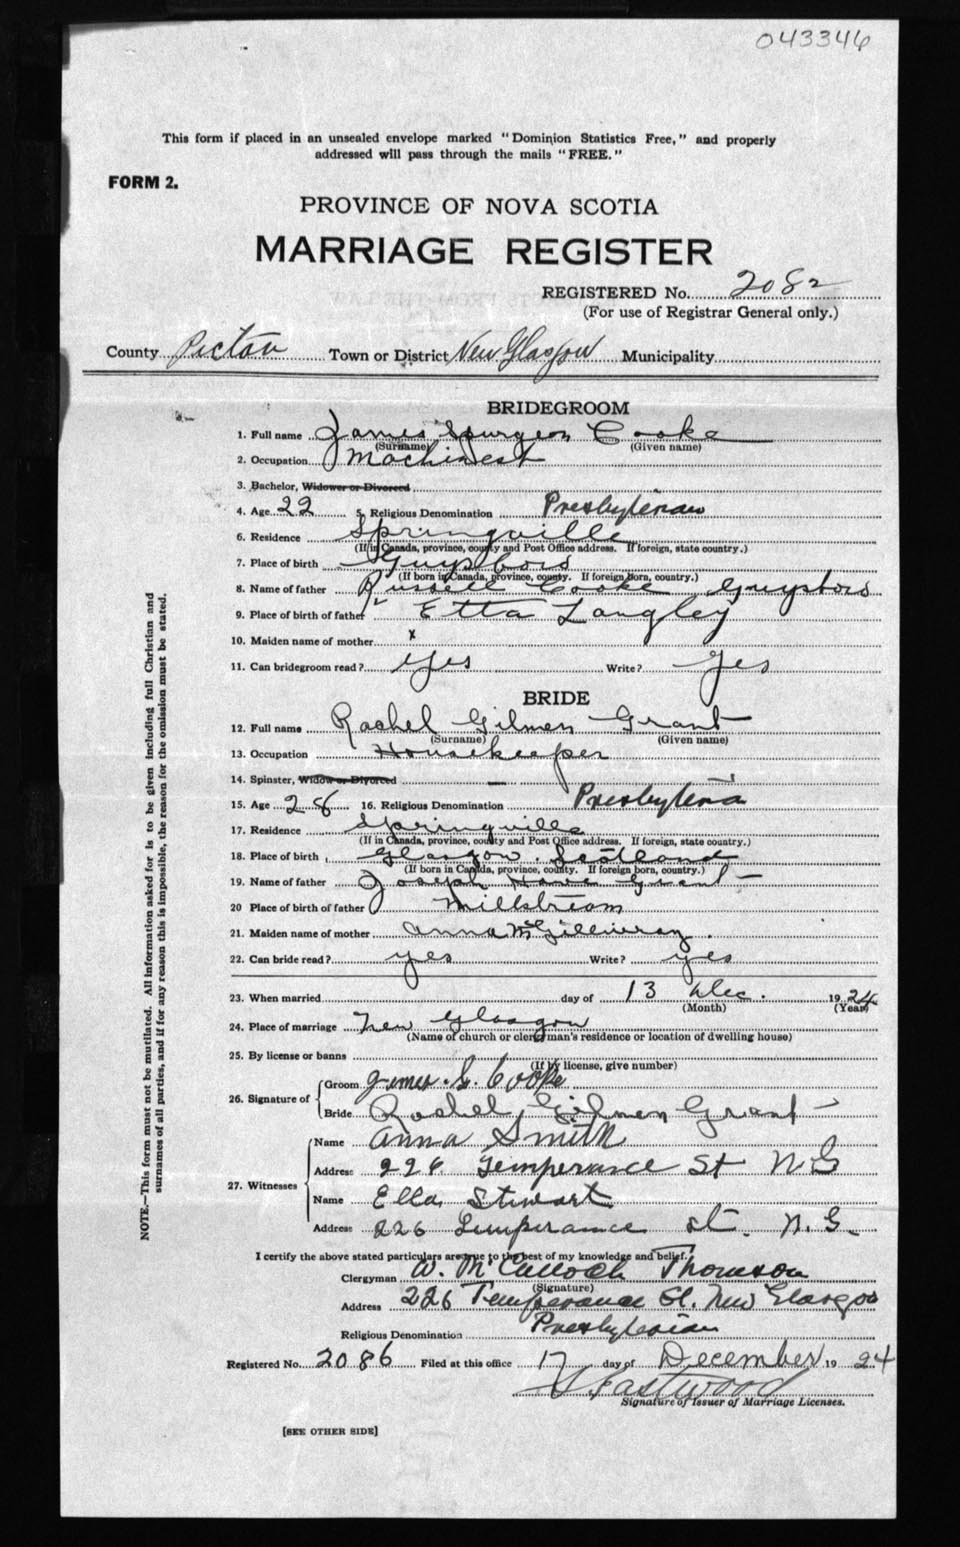 043346
This form if placed in an unsealed envelope marked "Dominion Statistics Free," and properly
addressed will pass through the mails "FREE."
FORM 2.
PROVINCE OF NOVA SCOTIA
MARRIAGE REGISTER
REGISTERED No. 2082
(For use of Registrar General only.)
County Pictou Town or District New Glasgow Municipality
BRIDEGROOM
1. Full name James Spurgeon Cooke
(Surname) (Given name)
2. Occupation Machinest
3. Bachelor, Widower or Divorced
4. Age 22 5. Religious Denomination Presbyterian
6. Residence Springville
(If in Canada, province, county and Post Office address. If foreign, state country.)
7. Place of birth Guysboro
(If born in Canada, province, county. If foreign born, country.)
8. Name of father Russell Cooke Guysboro
9. Place of birth of father Etta Langley
10. Maiden name of mother x
11. Can bridegroom read? Yes Write? Yes
BRIDE
12. Full name Rachel Gilmen Grant
(Surname) (Given name)
13. Occupation Housekeeper
14. Spinster, Widow or Divorced
15. Age 28 16. Religious Denomination Presbyteria
17. Residence Springville
(If in Canada, province, county and Post Office address. If foreign, state country.)
18. Place of birth Glasgow. Scotland
(If born in Canada, province, county. If foreign born, country.)
19. Name of father Joseph Howe Grant
20 Place of birth of father Millstream
21. Maiden name of mother Anna McGillivray.
22. Can bride read? yes Write? yes
23. When married day of 13 Dec. 1924
(Month) (Year)
24. Place of marriage New Glasgow
(Name of church or clergyman's residence or location of dwelling house)
25. By license or banns
(If by license, give number)
26. Signature of
Groom James S. Cooke
Bride Rachel Gilmen Grant
27. Witnesses
Name Anna Smith
Address 226 Temperance St N G
Name Ella Stewart
Address 226 Temperance st. N. G.
I certify the above stated particulars are true to the best of my knowledge and belief.
Clergyman W. McCulloch Thomson
(Signature)
Address 226 Temperance St. New Glasgow
Religious Denomination Presbyterian
Registered No. 2086 Filed at this office 17 day of December 1924
S. Eastwood
Signature of Issuer of Marriage Licenses.
[SEE OTHER SIDE]
NOTE.—This form must not be mutilated. All information asked for is to be given including full Christian and
surnames of all parties, and if for any reason this is impossible, the reason for the omission must be stated.